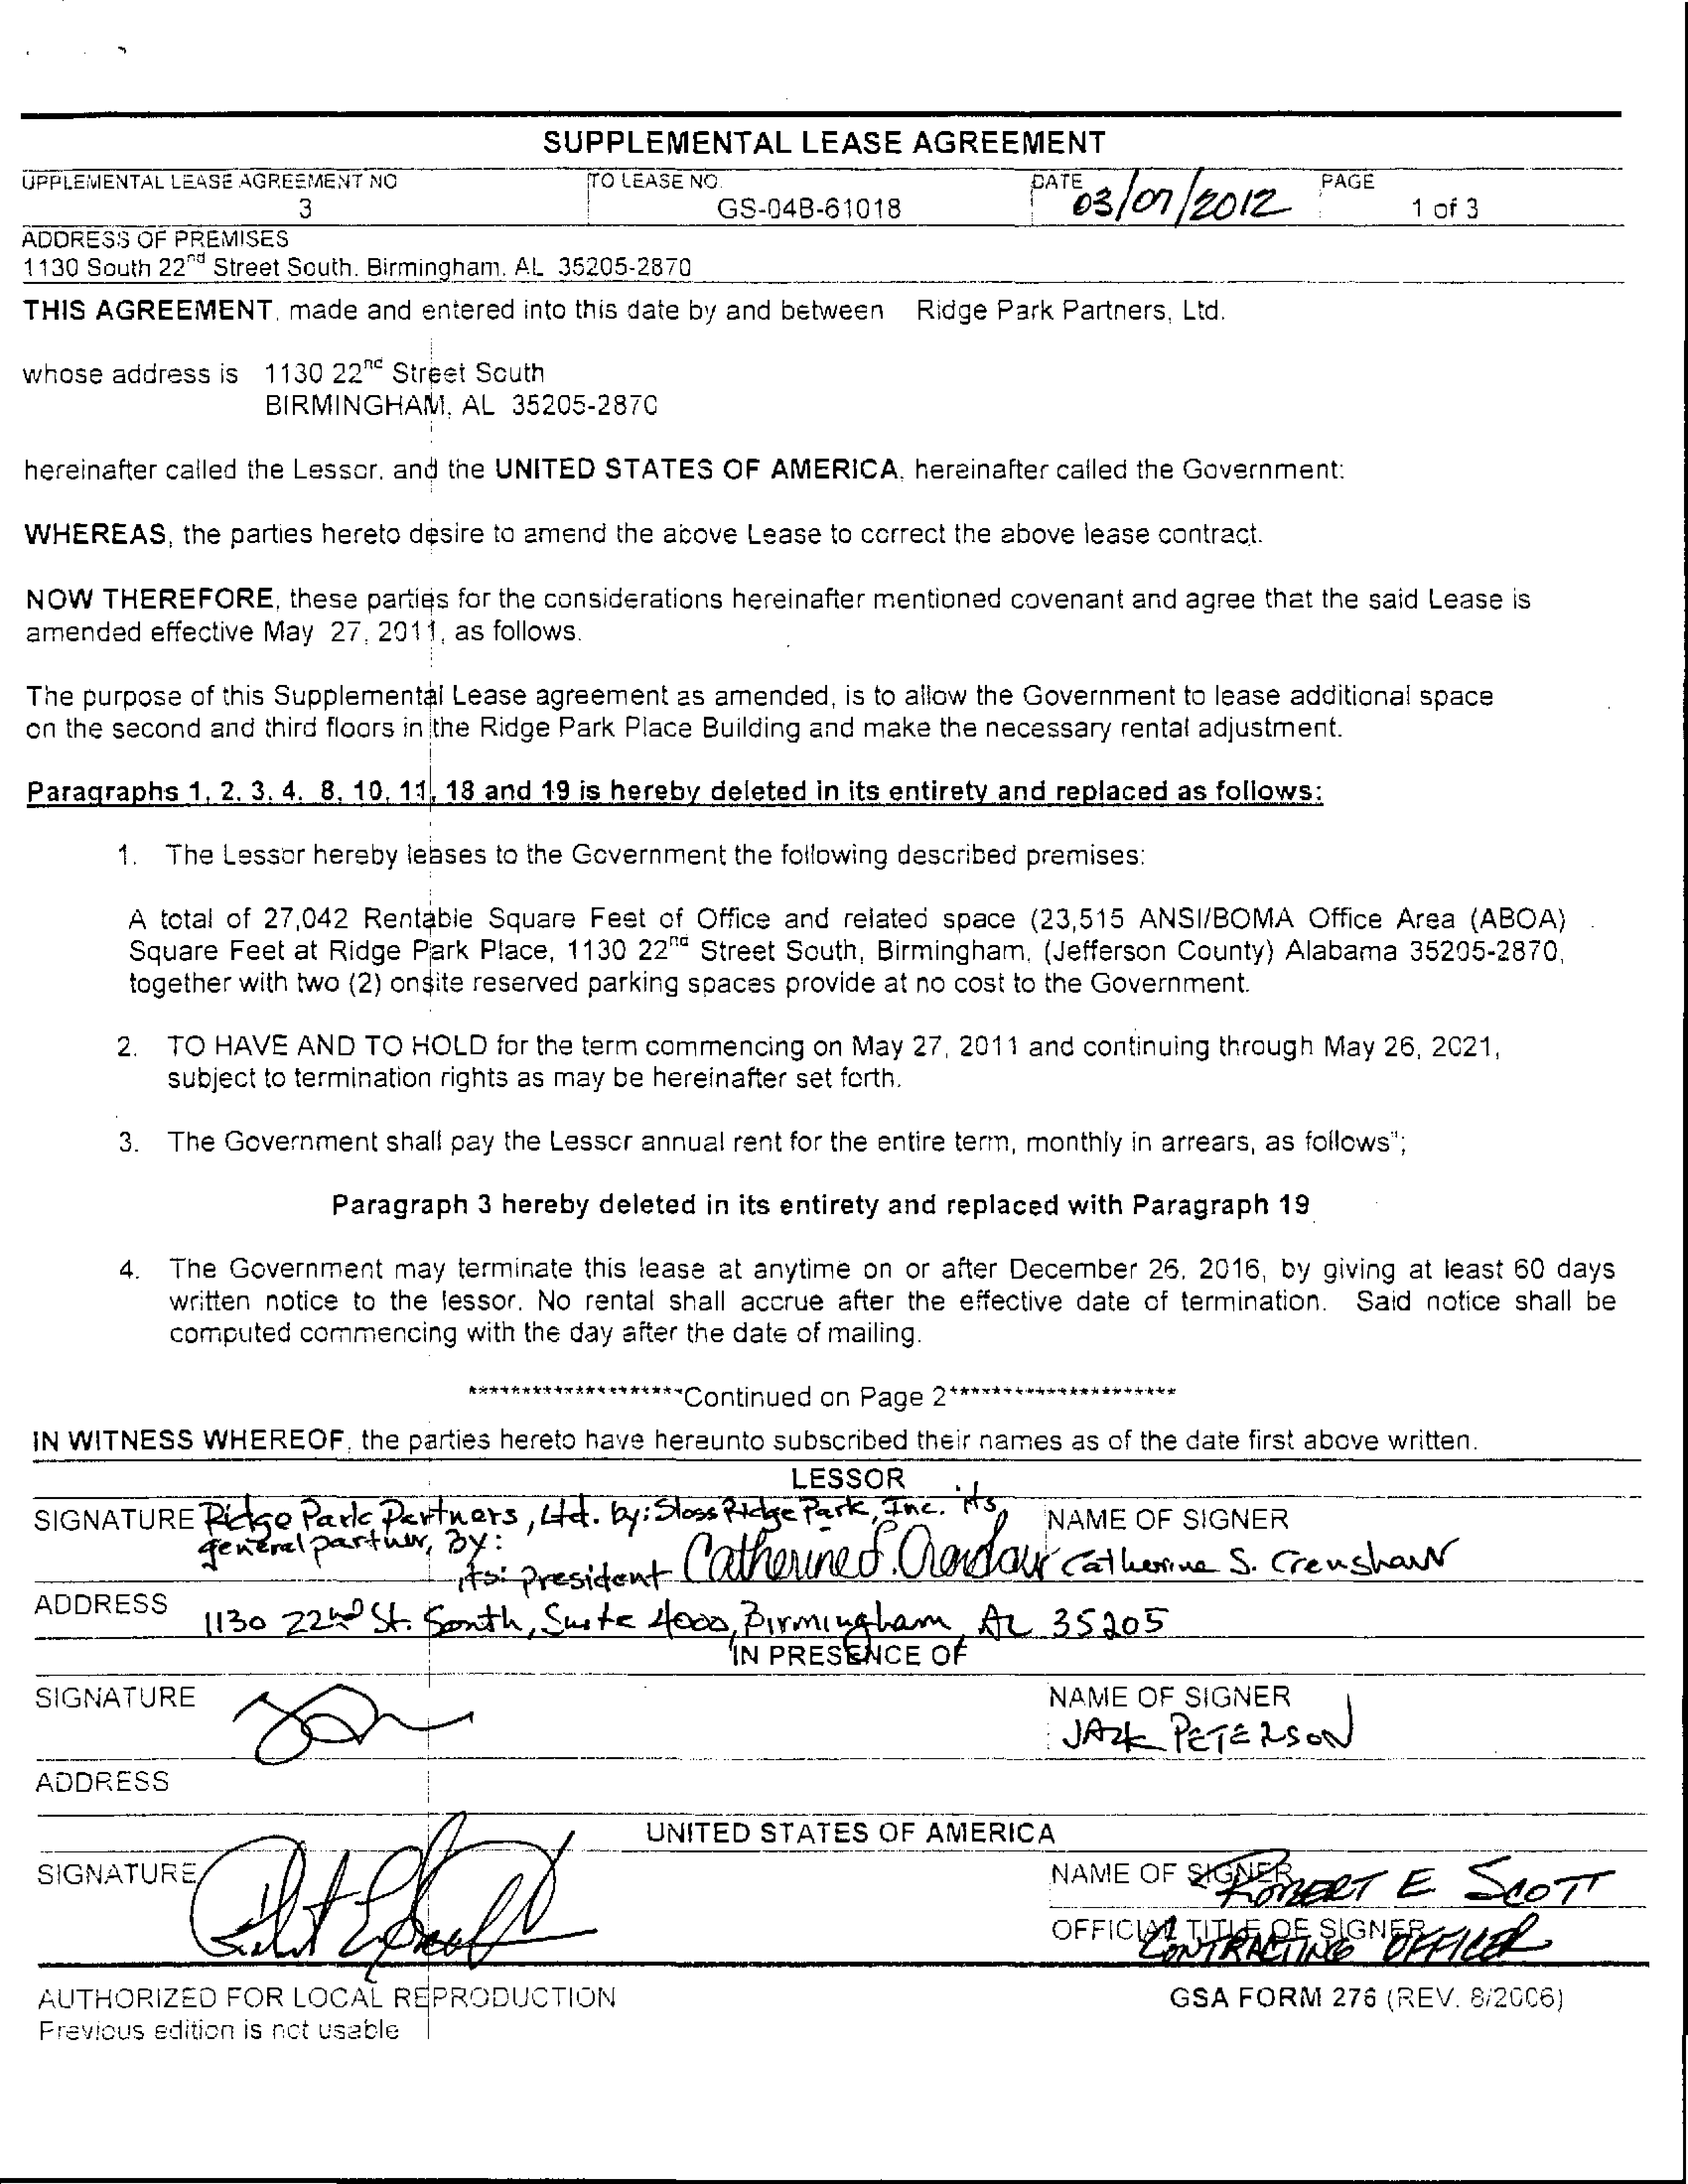 SUPPLEMENTAL LEASE AGREEMENT
UPPLEMENTAL LEASE AGREEMENT NO
3
TO LEASE NO.
GS-04B-61018
DATE
03/07/2012
PAGE
1 of 3
ADDRESS OF PREMISES
1130 South 22nd Street South. Birmingham, AL 35205-2870
THIS AGREEMENT, made and entered into this date by and between Ridge Park Partners, Ltd.
whose address is 1130 22nd Street South
BIRMINGHAM, AL 35205-2870
hereinafter called the Lessor, and the UNITED STATES OF AMERICA, hereinafter called the Government:
WHEREAS, the parties hereto desire to amend the above Lease to correct the above lease contract.
NOW THEREFORE, these parties for the considerations hereinafter mentioned covenant and agree that the said Lease is
amended effective May 27, 2011, as follows.
The purpose of this Supplemental Lease agreement as amended, is to allow the Government to lease additional space
on the second and third floors in the Ridge Park Place Building and make the necessary rental adjustment.
Paragraphs 1, 2, 3, 4, 8, 10, 11, 18 and 19 is hereby deleted in its entirety and replaced as follows:
1. The Lessor hereby leases to the Government the following described premises:
A total of 27,042 Rentable Square Feet of Office and related space (23,515 ANSI/BOMA Office Area (ABOA)
Square Feet at Ridge Park Place, 1130 22nd Street South, Birmingham, (Jefferson County) Alabama 35205-2870,
together with two (2) onsite reserved parking spaces provide at no cost to the Government.
2. TO HAVE AND TO HOLD for the term commencing on May 27, 2011 and continuing through May 26, 2021,
subject to termination rights as may be hereinafter set forth.
3. The Government shall pay the Lessor annual rent for the entire term, monthly in arrears, as follows";
Paragraph 3 hereby deleted in its entirety and replaced with Paragraph 19
4. The Government may terminate this lease at anytime on or after December 26, 2016, by giving at least 60 days
written notice to the lessor. No rental shall accrue after the effective date of termination. Said notice shall be
computed commencing with the day after the date of mailing.
********************Continued on Page 2**********************
IN WITNESS WHEREOF, the parties hereto have hereunto subscribed their names as of the date first above written.
LESSOR
SIGNATURE Ridge Park Partners, Ltd. by: Sloss Ridge Park, Inc. its
general partner, By:
its: president Catherine S. Crenshaw
NAME OF SIGNER
Catherine S. Crenshaw
ADDRESS
1130 22nd St. South, Suite 4000, Birmingham, AL 35205
IN PRESENCE OF
SIGNATURE
NAME OF SIGNER
JACK PETERSON
ADDRESS
UNITED STATES OF AMERICA
SIGNATURE
NAME OF SIGNER
ROBERT E SCOTT
OFFICIAL TITLE OF SIGNER
CONTRACTING OFFICER
AUTHORIZED FOR LOCAL REPRODUCTION
Previous edition is not usable
GSA FORM 276 (REV. 8/2006)